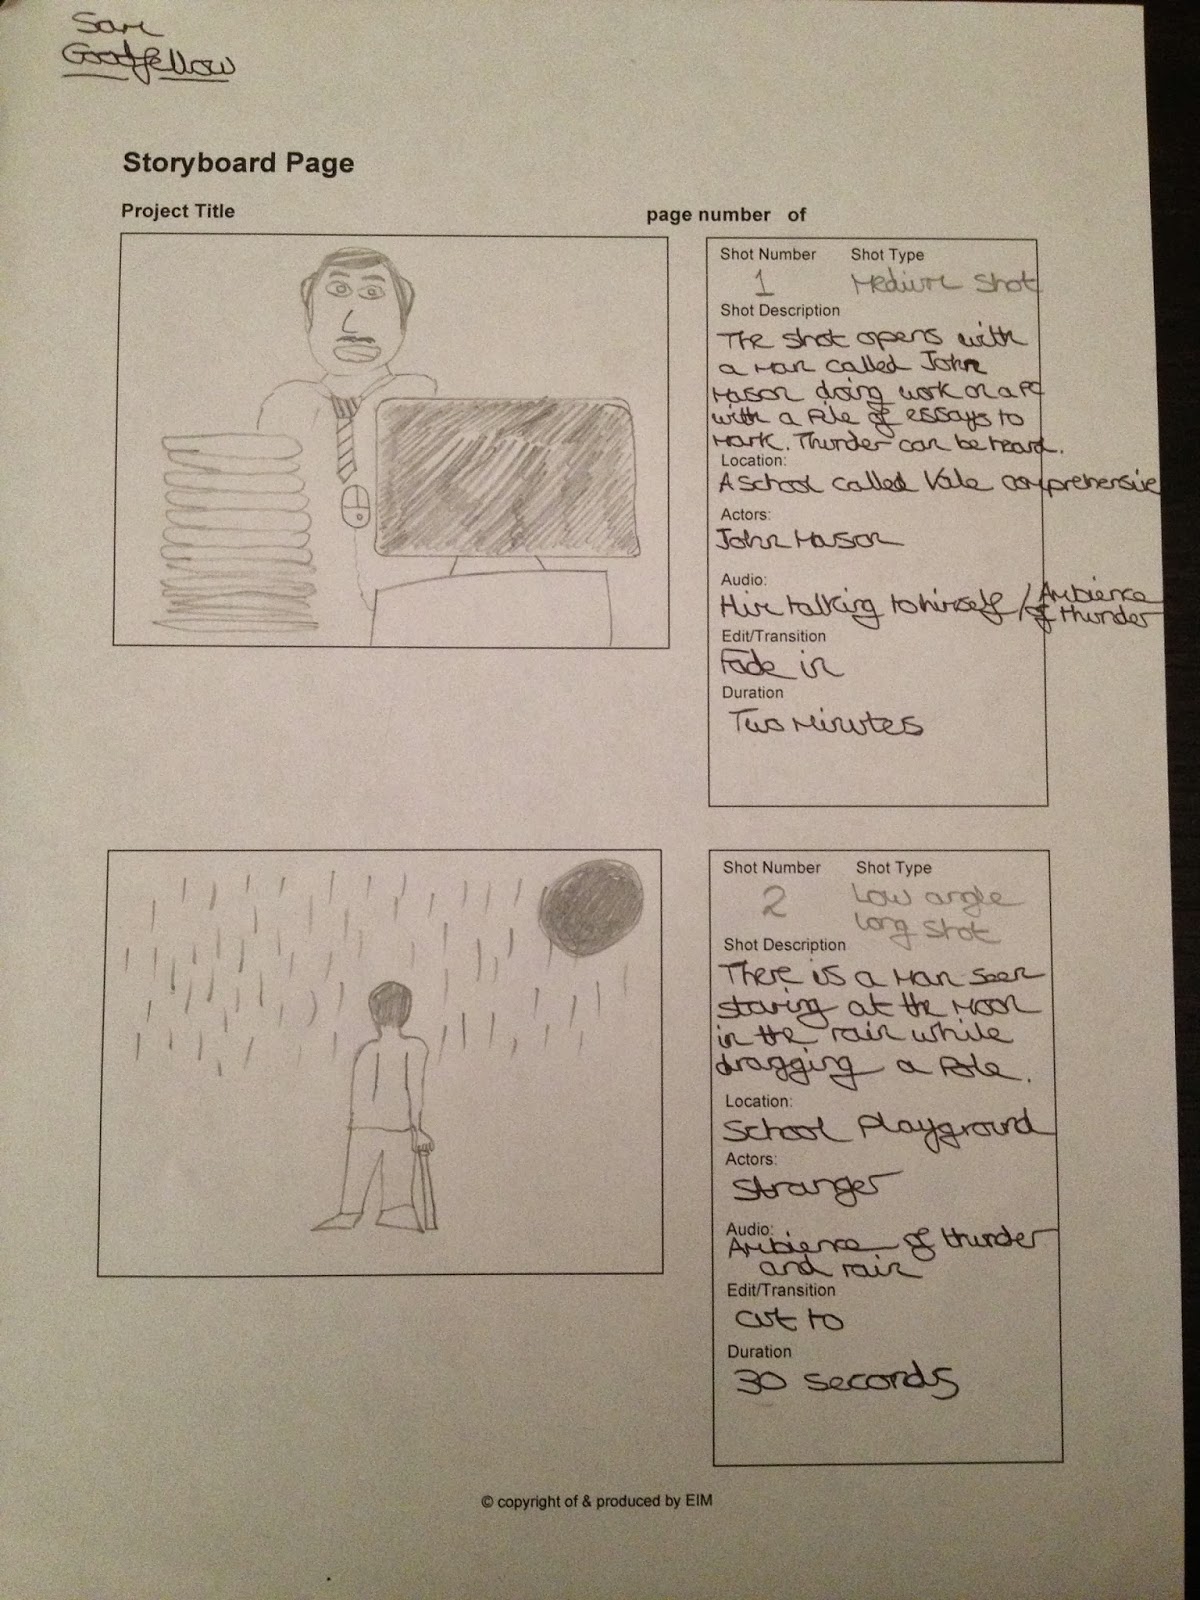 Sam
Goodfellow
Storyboard Page
Project Title
page number of
Shot Number Shot Type
1 Medium Shot
Shot Description
The shot opens with
a man called John
Mason doing work on a PC
with a pile of essays to
mark. Thunder can be heard.
Location:
A school called Vale comprehensive
Actors:
John Mason
Audio:
Him talking to himself / Ambience
of thunder
Edit/Transition
Fade in
Duration
Two Minutes
Shot Number Shot Type
2 Low angle
long shot
Shot Description
There is a man seen
staring at the moon
in the rain while
dragging a Pole.
Location:
School Playground
Actors:
Stranger
Audio:
Ambience of thunder
and rain
Edit/Transition
cut to
Duration
30 seconds
© copyright of & produced by EIM